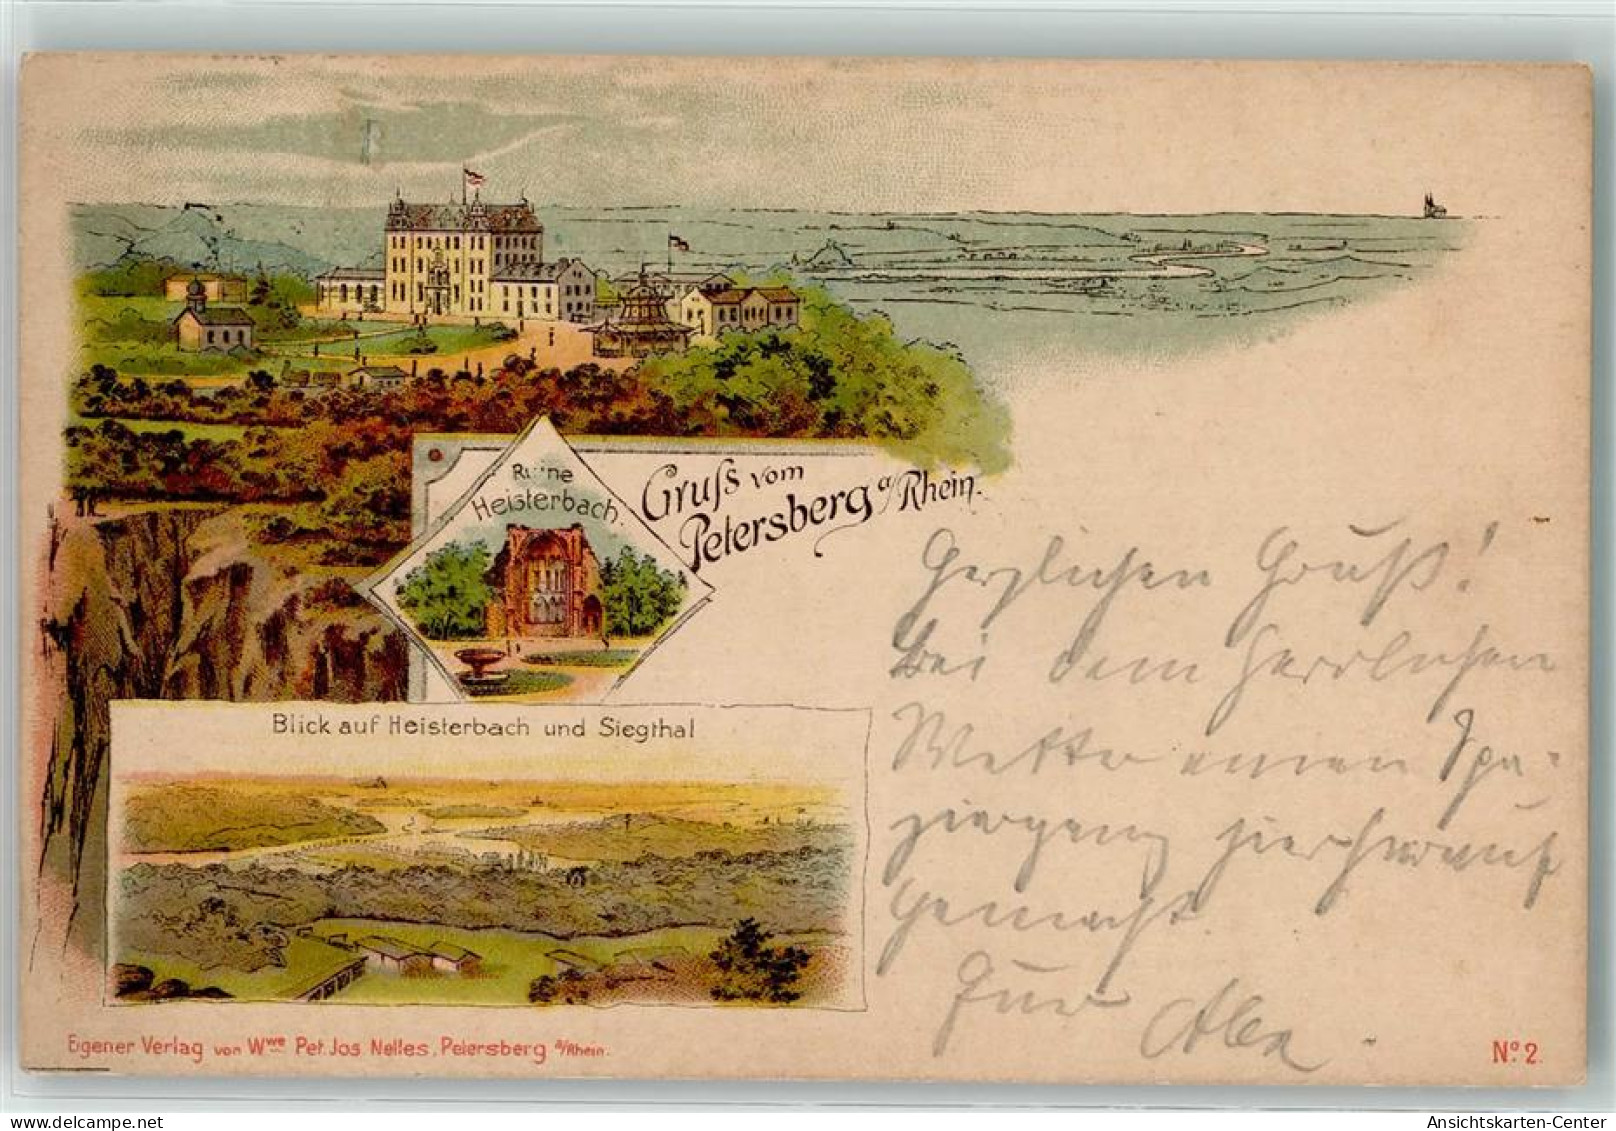 Ruine
Heisterbach.
Gruſs vom
Petersberg a/Rhein.
Herzlichen Gruß!
Bei dem herrlichen
Wetter einen Spa-
ziergang hierherauf
gemacht.
Blick auf Heisterbach und Siegthal
Eigener Verlag von Wwe Pet. Jos. Nelles, Petersberg a/Rhein.
No. 2.
Ansichtskarten-Center